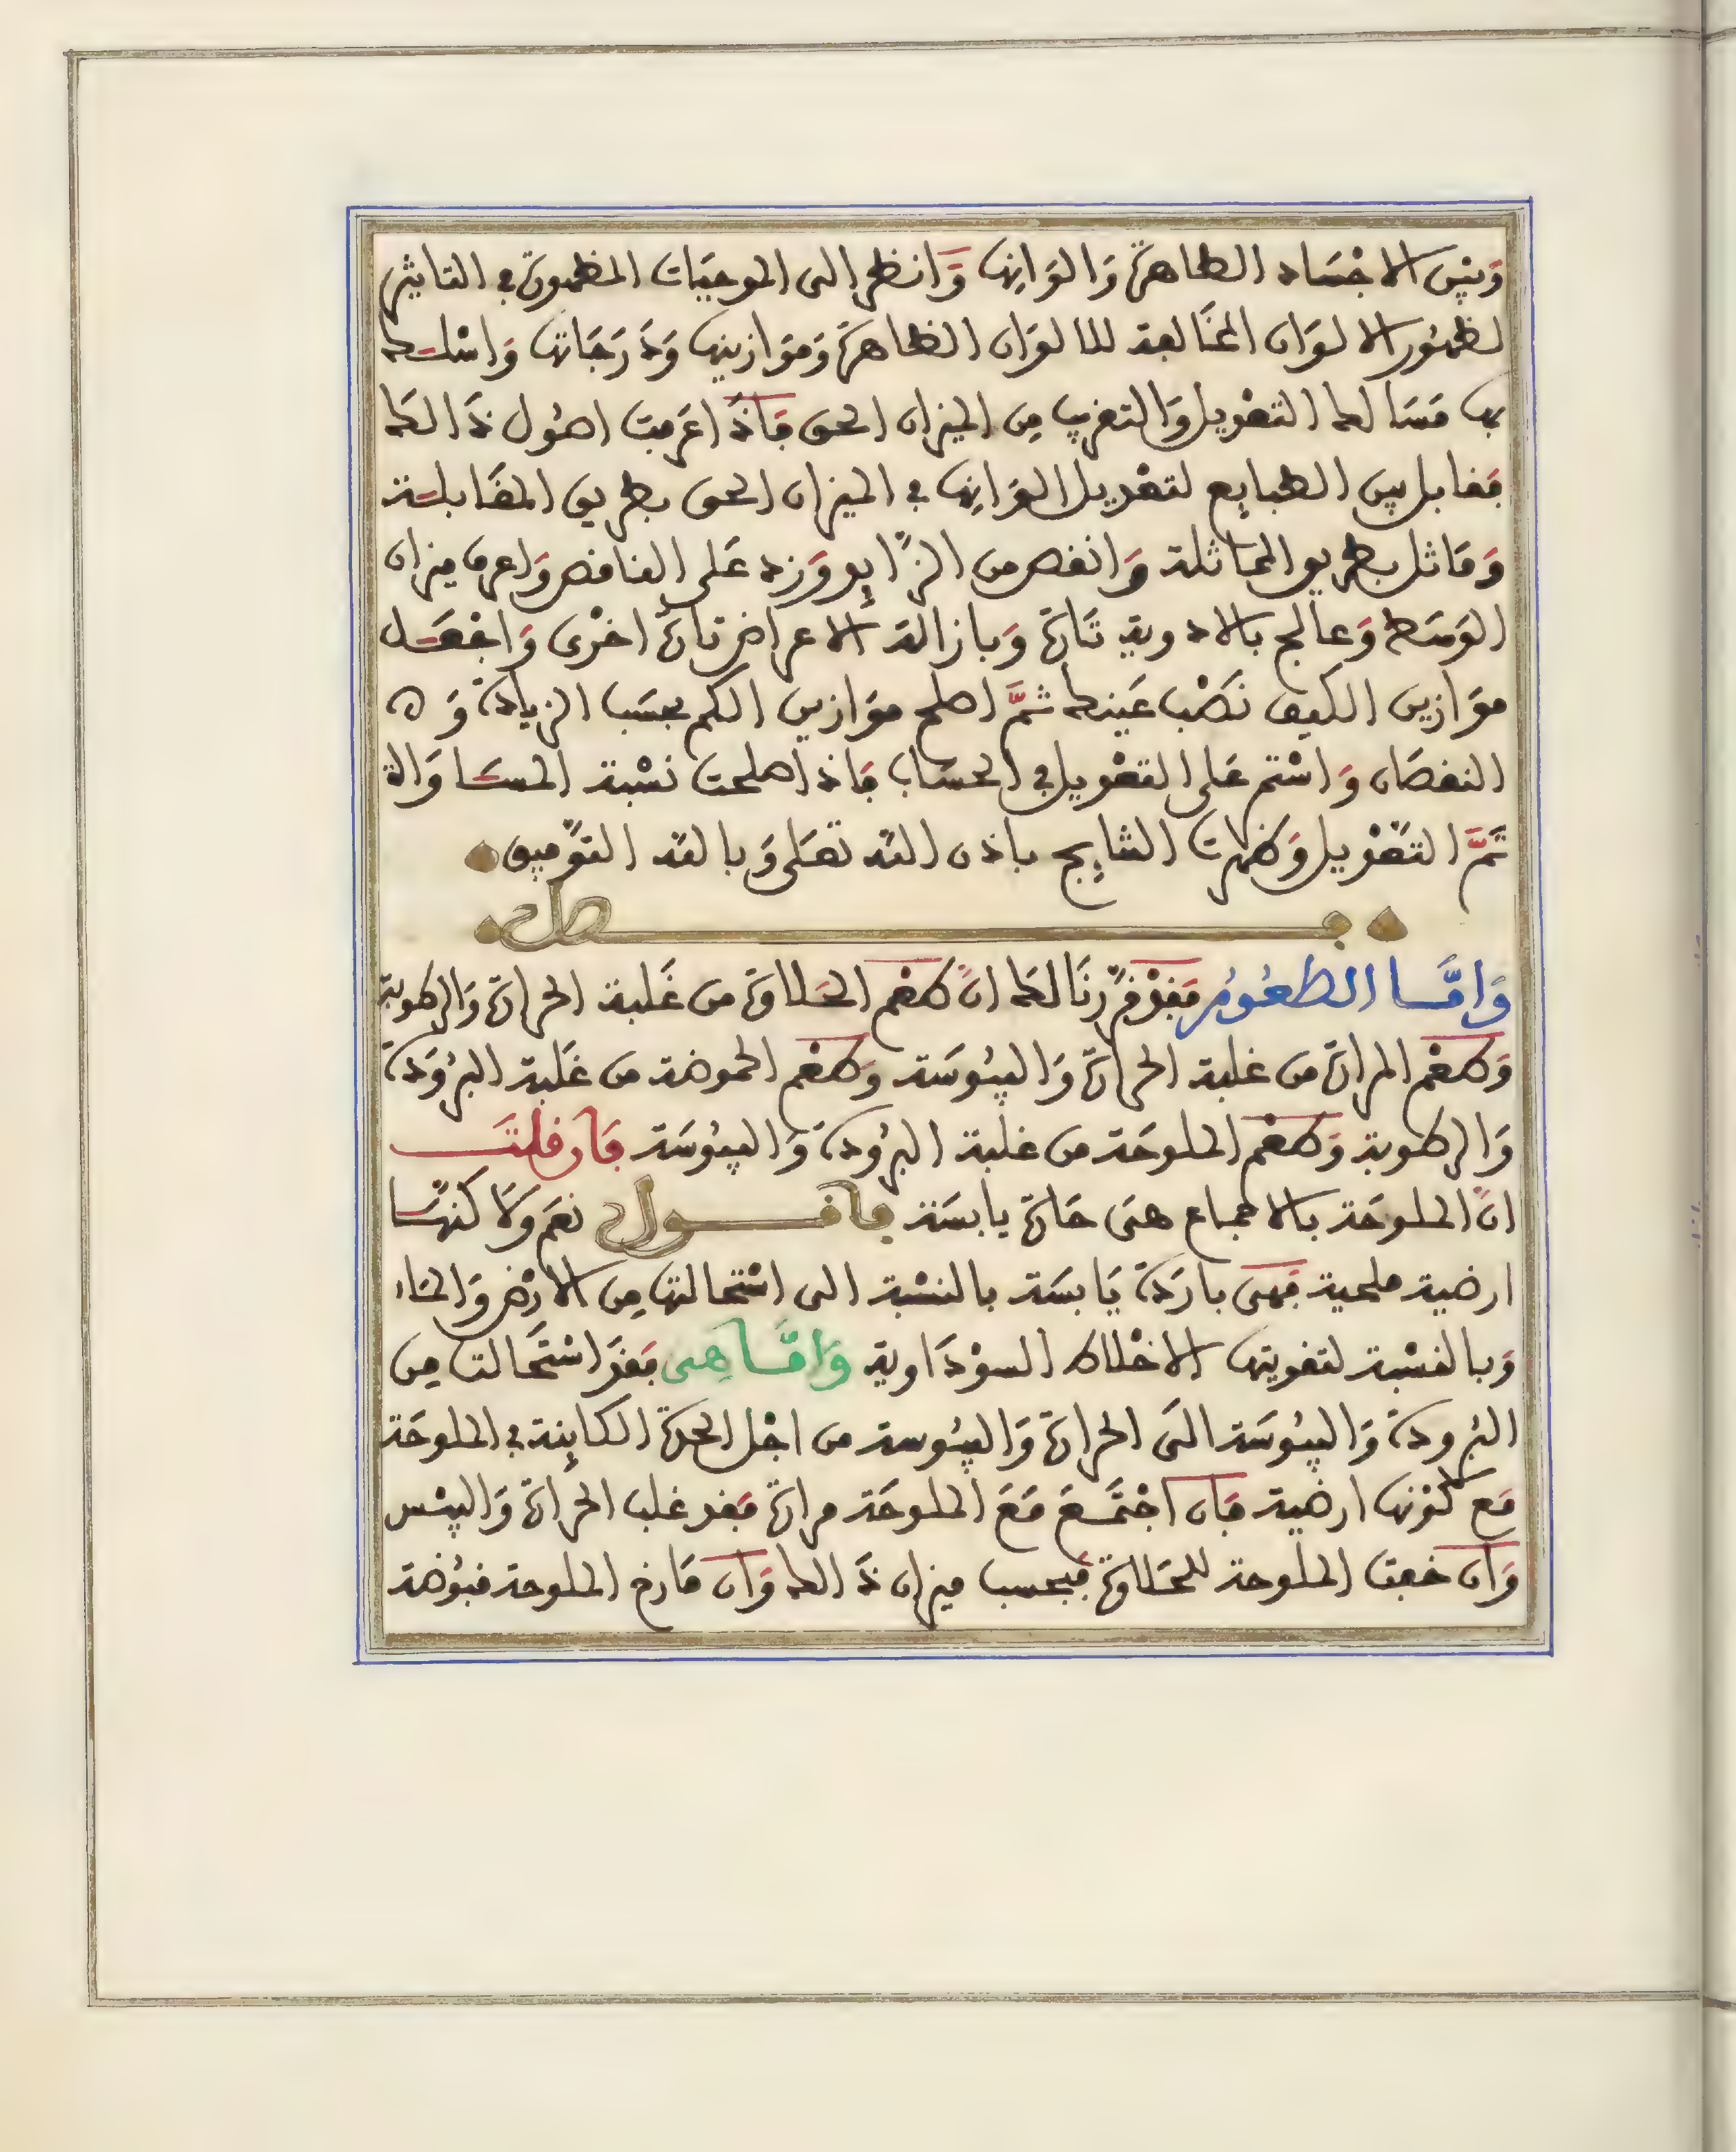 وَبَيْن الاجْسَاد الطاهرَة وَالوَانِها وَّانظر الى الموجبَات المظهرة في التاثير
لظهُور الالوَان المخَالفة للالوَان الظاهرَة وَمَوَازينها وَدَرَجَاتها وَاسْلك
بها مَسَالك التعْديل وَالتقريب مِن الميزان الحق فَاذَا عرَفت اصُول ذَالك
فقابل بين الطبايِع لتعْديل الوَانِها في الميزان الحق بطريق المقَابلة
وَمَاثل بطريق المماثلة وَانقص من الزَّايِد وَزد عَلى الناقص وَاعرف ميزان
الوَسَط وَعالج بالادوية تَارَة وَبازالة الاعراض تارَة اخْرى وَاجْعَل
موَازين الكيف نَصْب عَينك ثمَّ اصلح موَازين الكم بحسَب الزيادَة وَ ه
النقصَان وَاسْتمر عَلى التعْديل في الحسَاب فاذا صلحت نسْبة المسَاوَاة
تَمَّ التَعْديل وَظهرت النتايِج باذن الله تعَلى وَبالله التوْفيق
فصل
وَامَّا الطعُومُ فقَدْ قرَّرنَا لك انَّ طعْم الحَلاوَة من غَلبة الحرارَة وَالرطوبة
وَطعْم المرارَة من غلبة الحرارَة وَاليبُوسَة وَطعْم الحموضة من غَلبة البرُودَة
وَالرطوبة وَطعْم الملوحَة من غلبة البرُودَة وَاليبُوسَة فَان قلتَ
انَّ الملوحَة بالاجماع هىَ حَارَة يابسَة فاقول نعَم وَلاكنهَا
ارضية ملحية فَهىَ باردَة يَابسَة بالنسْبة الى اسْتحالتها مِن الارْض وَالمَاء
وَبالنسْبة لتقويتها الاخْلاط السوْدَاوية وَامَّا هِى فقدَ اسْتحَالت مِن
البُرودَة وَاليبُوسَة الىَ الحرارَة وَاليبُوسة من اجْل الحدَة الكايِنة في الملوحَة
مَع كوْنها ارضية فَان اجْتمَعَ مَعَ الملوحَة مرارَة فَقد غلب الحرارَة وَاليبْس
وَان خفت الملوحة للحَلاوَة فَبحسب ميزان ذَالك وَان مَازج الملوحة قبُوضة